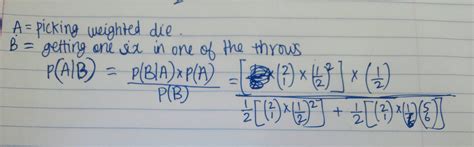 A = picking weighted die.
B = getting one six in one of the throws
P(A|B) = P(B|A)×P(A) / P(B) = [(2 1) × (1/2)²] × (1/2) / 1/2[(2 1) × (1/2)²] + 1/2[(2 1) × (1/6)(5/6)]